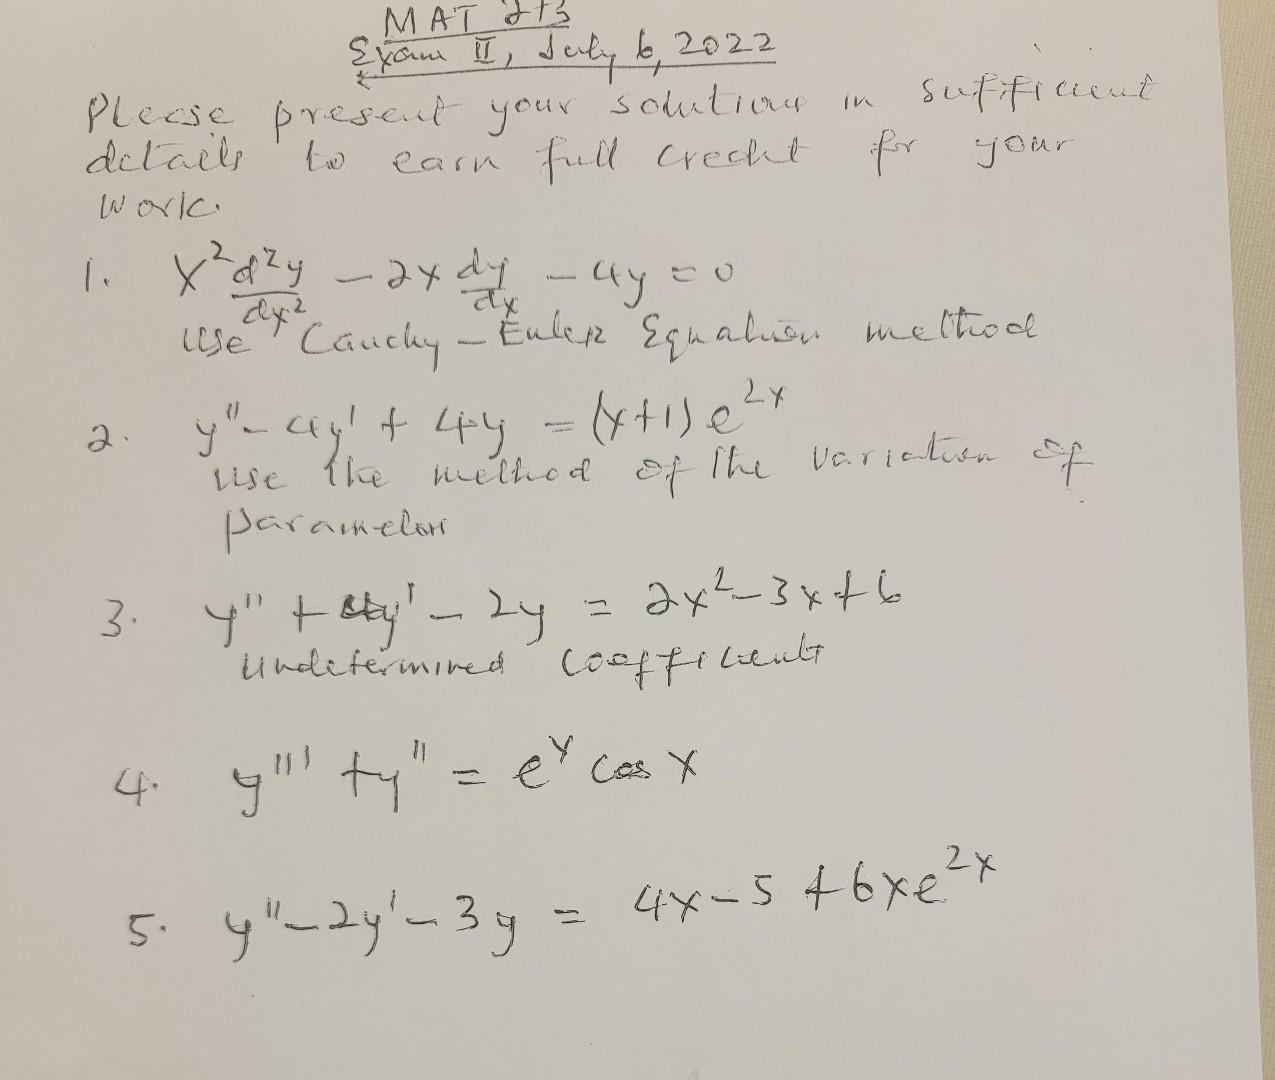 MAT 273
Exam II, July 6, 2022
Please present your solutions in sufficient
details to earn full credit for your
work.
1. x² d²y/dx² - 2x dy/dx - 4y = 0
Use Cauchy-Euler Equation method
2. y'' - 4y' + 4y = (x+1) e^{2x}
Use the method of the variation of
parameters
3. y'' + 4y' - 2y = 2x² - 3x + 6
Undetermined coefficient
4. y''' + y'' = e^x cos x
5. y'' - 2y' - 3y = 4x - 5 + 6xe^{2x}